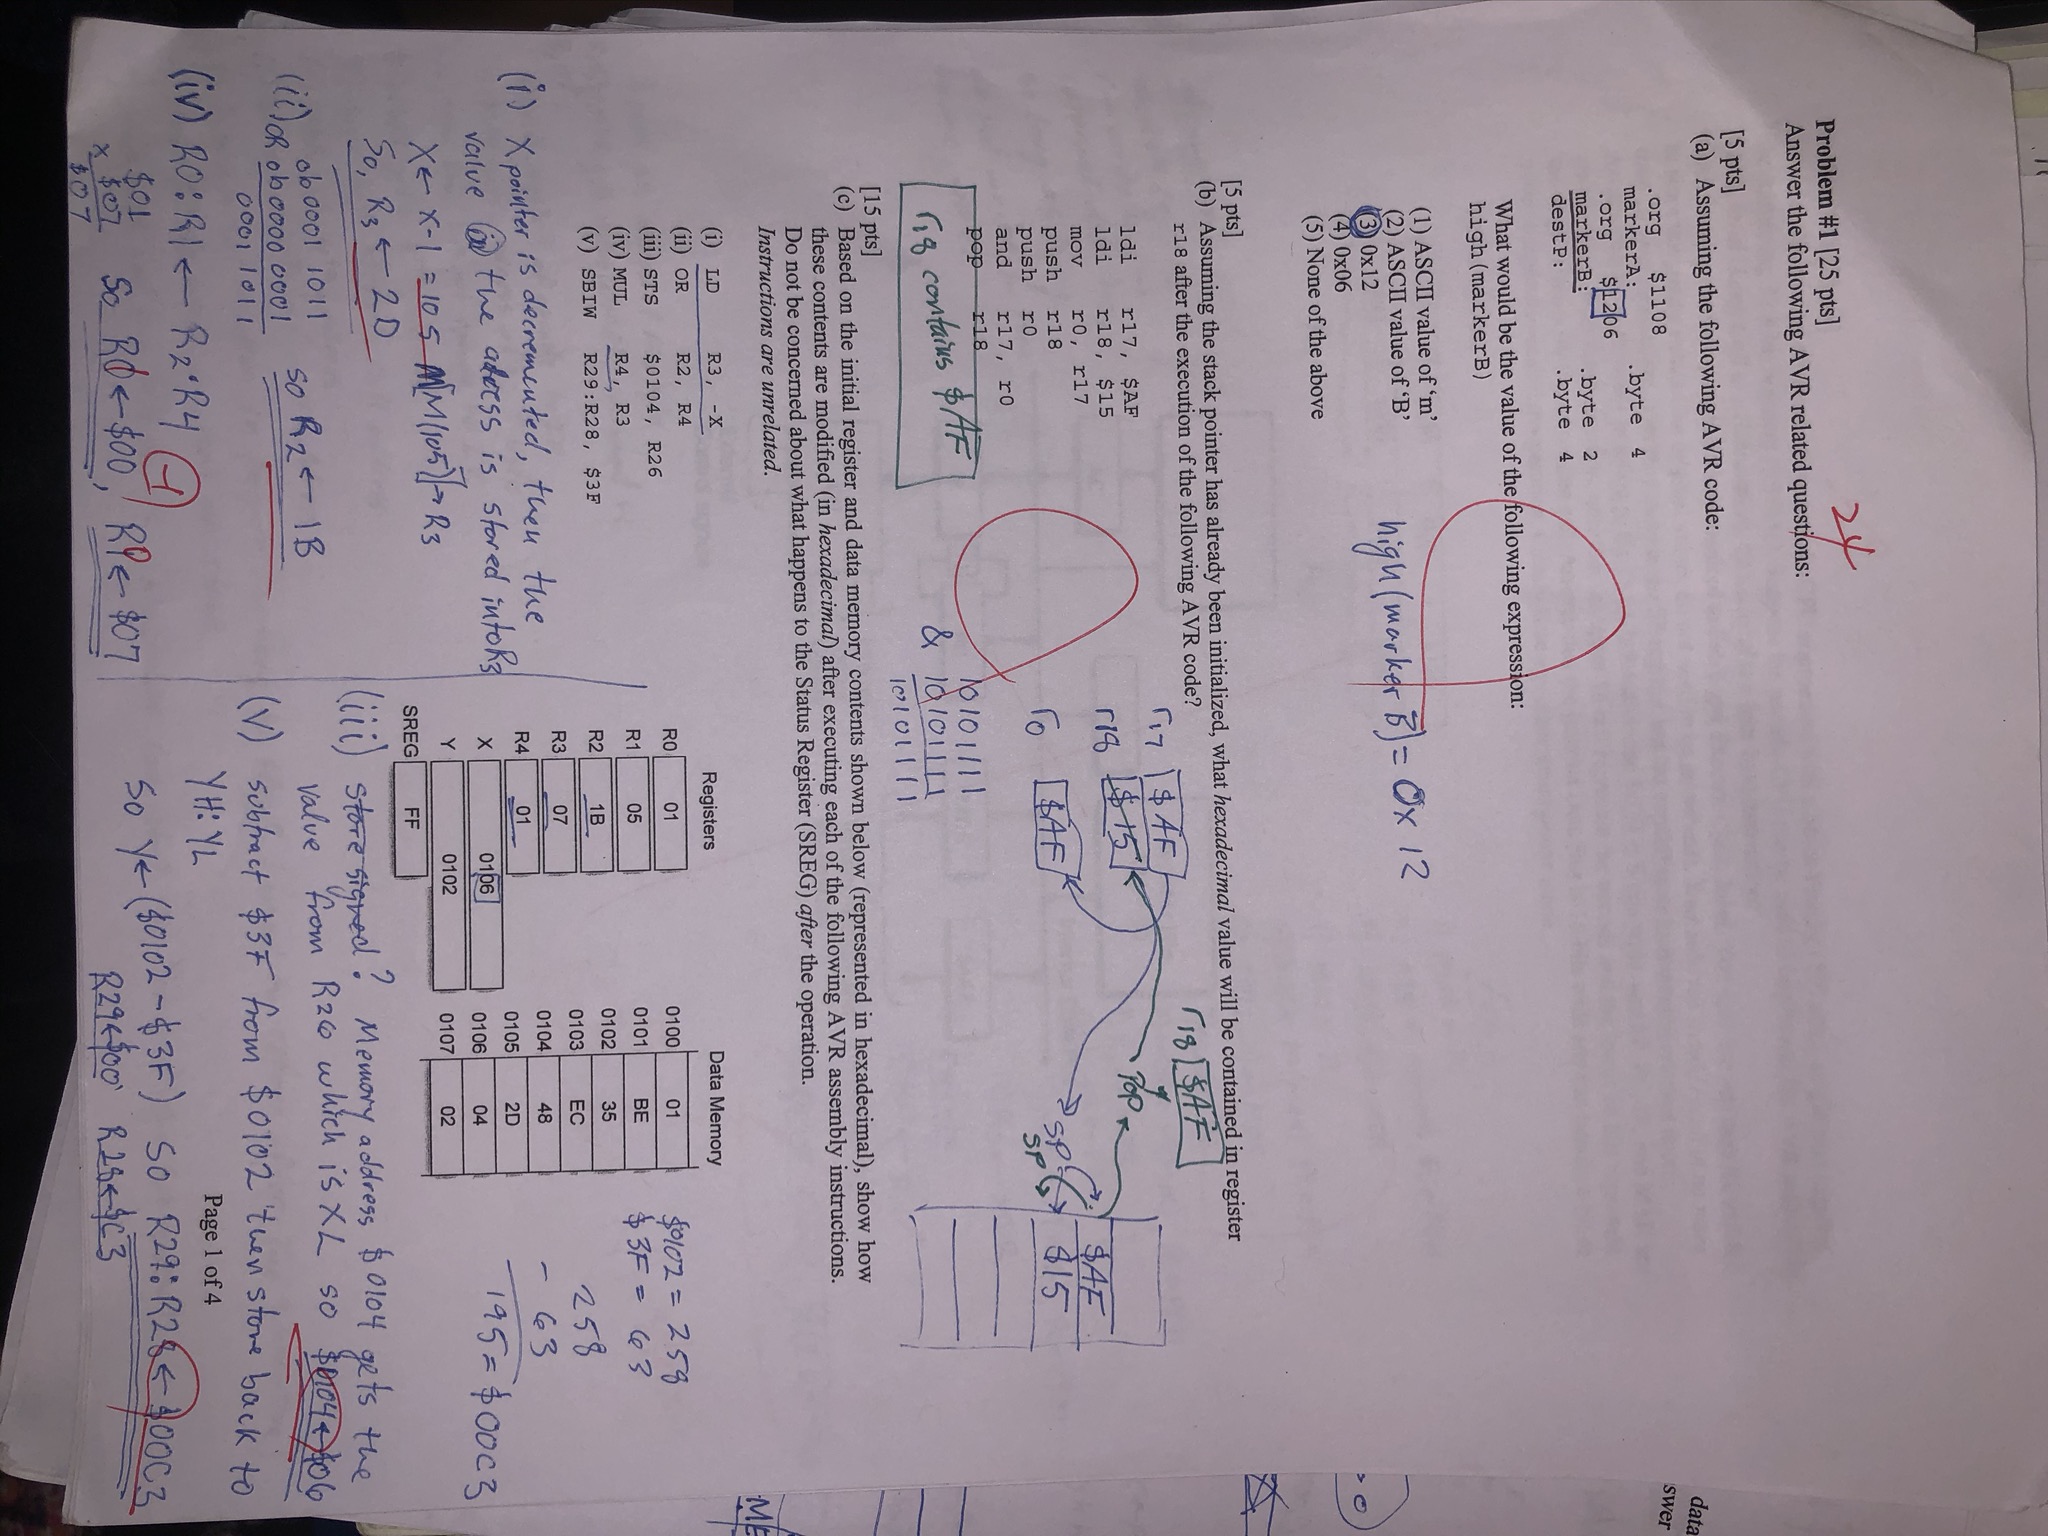 Problem #1 [25 pts]
24
Answer the following AVR related questions:
[5 pts]
(a) Assuming the following AVR code:
.org $1108
markerA: .byte 4
.org $1206
markerB: .byte 2
destP: .byte 4
What would be the value of the following expression:
high(markerB)
(1) ASCII value of 'm'
(2) ASCII value of 'B'
(3) 0x12
(4) 0x06
(5) None of the above
high(marker B) = 0x12
[5 pts]
(b) Assuming the stack pointer has already been initialized, what hexadecimal value will be contained in register
r18 after the execution of the following AVR code?
ldi r17, $AF
ldi r18, $15
mov r0, r17
push r18
push r0
and r17, r0
pop r18
r18 contains $AF
r17 $AF
r18 $15
r0 $AF
10101111
& 10101111
10101111
r18 $AF
pop
SP
SP
$AF
$15
[15 pts]
(c) Based on the initial register and data memory contents shown below (represented in hexadecimal), show how
these contents are modified (in hexadecimal) after executing each of the following AVR assembly instructions.
Do not be concerned about what happens to the Status Register (SREG) after the operation.
Instructions are unrelated.
(i) LD R3, -X
(ii) OR R2, R4
(iii) STS $0104, R26
(iv) MUL R4, R3
(v) SBIW R29:R28, $3F
Registers
R0 01
R1 05
R2 1B
R3 07
R4 01
X 0106
Y 0102
SREG FF
Data Memory
0100 01
0101 BE
0102 35
0103 EC
0104 48
0105 2D
0106 04
0107 02
$0102 = 258
$3F = 63
258
- 63
195 = $00C3
(i) X pointer is decremented, then the
value the address is stored into R3
X ← X-1 = 105 M(105) → R3
So, R3 ← 2D
(ii) 0b0001 1011
OR 0b0000 0001
0001 1011
so R2 ← 1B
(iv) R0:R1 ← R2·R4
-1
$01
x $07
$07
So R0 ← $00, R1 ← $07
(iii) store signed? Memory address $0104 gets the
value from R26 which is XL so $0104 ← $06
(v) subtract $3F from $0102 then store back to
YH:YL
So Y ← ($0102 - $3F) so R29:R28 ← $00C3
R29 ← $00 R28 ← $C3
Page 1 of 4
data
swer
ME